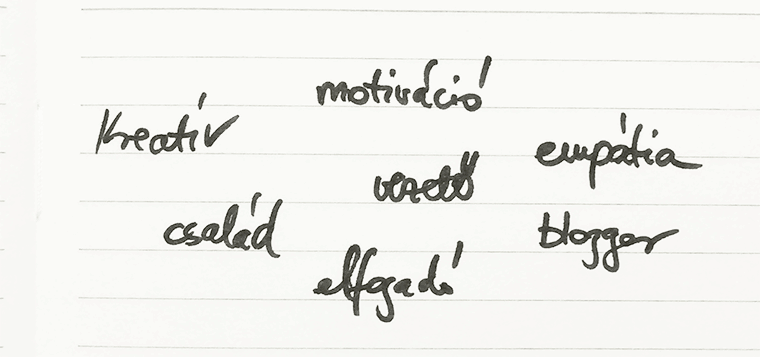 motiváció
Kreatív
empátia
vezető
család
blogger
elfogadó